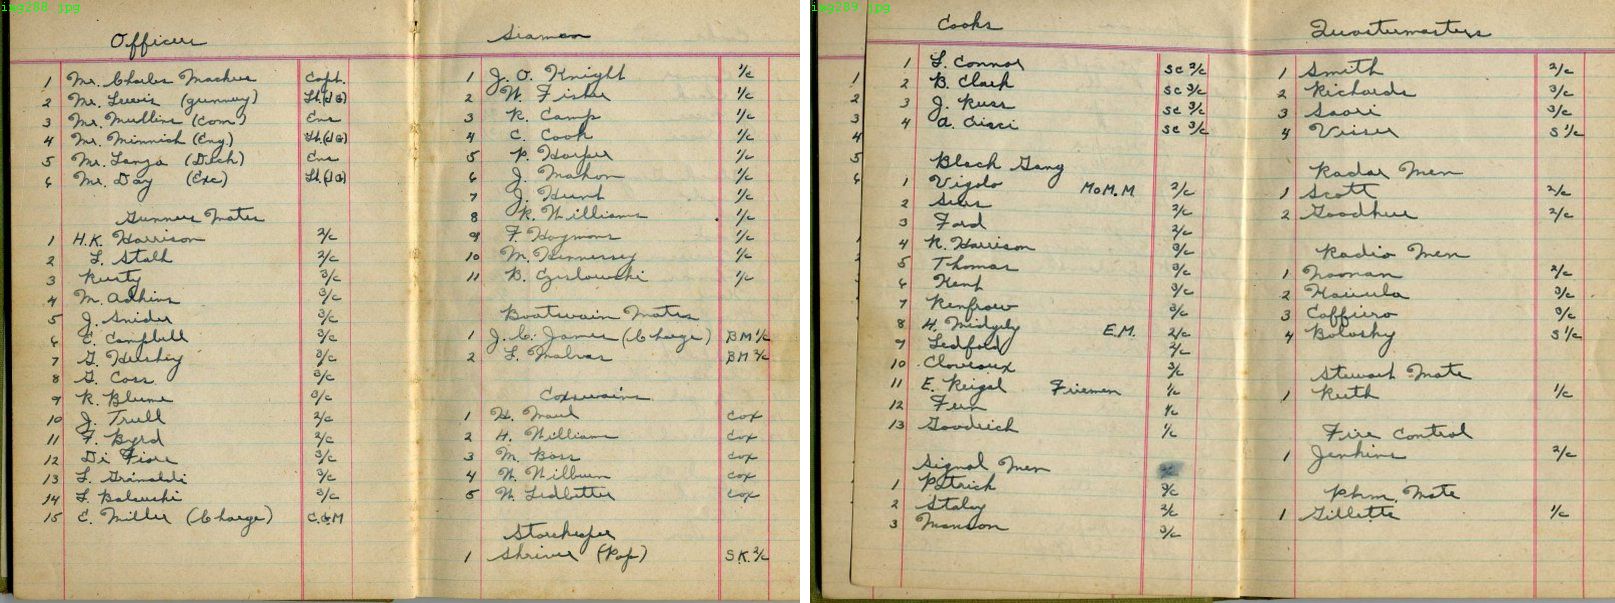 img288 jpg
Officers
1 Mr. Charles Mackus Capt.
2 Mr. Lewis (gunnery) Lt.(JG)
3 Mr. Mullins (Com) Ens
4 Mr. Minnich (Eng) Lt.(JG)
5 Mr. Lanza (Deck) Ens
6 Mr. Day (Exc) Lt.(JG)
Gunners Mates
1 H.K. Harrison 2/c
2 L. Stalk 2/c
3 Rusty 3/c
4 M. Adkins 3/c
5 J. Snider 3/c
6 E. Campbell 3/c
7 G. Hershey 3/c
8 G. Coss 3/c
9 R. Blume 3/c
10 J. Trull 2/c
11 F. Byrd 2/c
12 Di Fiore 3/c
13 L. Grimaldi 3/c
14 L. 3/c
15 E. Miller (Charge) C.G.M
Seaman
1 J. O. Knight 1/c
2 W. Fisher 1/c
3 R. Camp 1/c
4 C. Cook 1/c
5 P. Harper 1/c
6 J. Mahon 1/c
7 J. Hunt 1/c
8 R. Williams 1/c
9 F. Haymons 1/c
10 M. Hennessey 1/c
11 B. 1/c
Boatswain Mates
1 J. C. James (Charge) BM 1/c
2 L. Malvas BM 2/c
Coxswains
1 H. Maul Cox
2 H. William Cox
3 M. Boss Cox
4 W. Wilburn Cox
5 W. Ledbetter Cox
Storekeeper
1 Shriver (Pop) S.K. 2/c
img289 jpg
Cooks
1 L. Connor SC 2/c
2 B. Clark SC 3/c
3 J. Russ SC 3/c
4 A. Crisci SC 3/c
Black Gang
1 Vigolo Mo M.M 2/c
2 Sites 2/c
3 Ford 2/c
4 R. Harrison 3/c
5 Thomas 3/c
6 Kemp 3/c
7 Renfrow 3/c
8 H. Midgely E.M. 2/c
9 Ledford 2/c
10 Claveaux 3/c
11 E. Reigel Firemen 1/c
12 Fern 1/c
13 Goodrich 1/c
Signal Men
1 Patrick 2/c
2 Staley 2/c
3 Manson 3/c
Quartermasters
1 Smith 2/c
2 Richards 3/c
3 Saari 3/c
4 Veiser S 1/c
Radar Men
1 Scott 2/c
2 Goodhue 2/c
Radio Men
1 Noonan 2/c
2 3/c
3 Caffiero 3/c
4 Bolosky S 1/c
Steward Mate
1 Ruth 1/c
Fire Control
1 Jenkins 2/c
Phm. Mate
1 Gillette 1/c